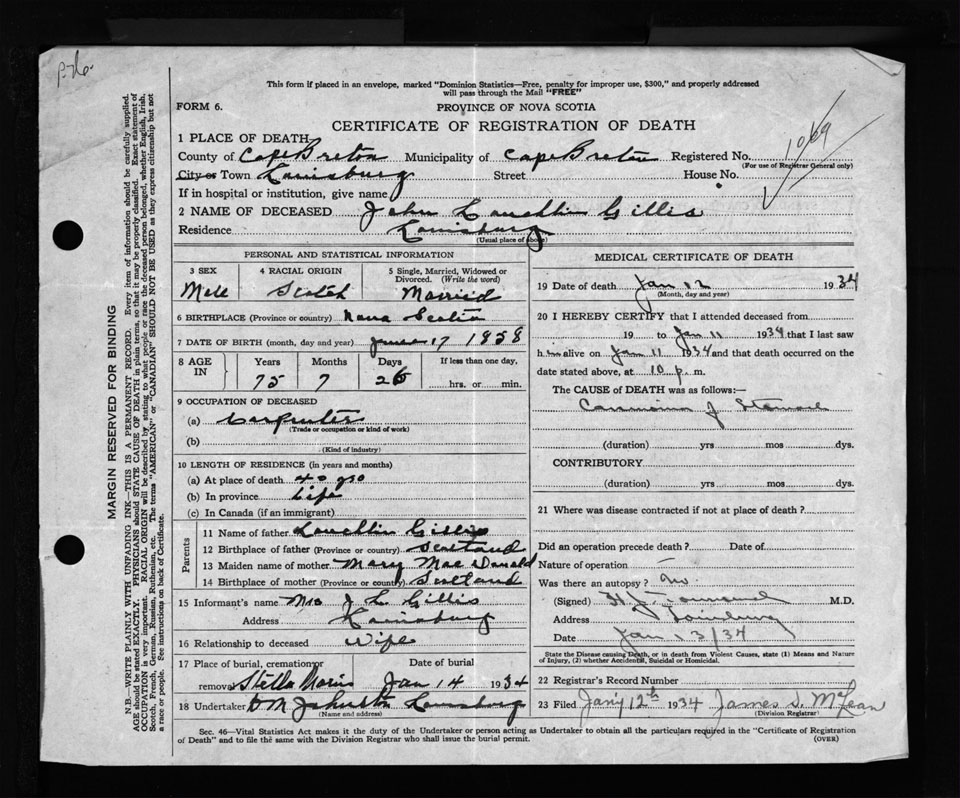 This form if placed in an envelope, marked "Dominion Statistics—Free, penalty for improper use, $300," and properly addressed
will pass through the Mail "FREE"
FORM 6.
PROVINCE OF NOVA SCOTIA
CERTIFICATE OF REGISTRATION OF DEATH
1069
1 PLACE OF DEATH
County of Cape Breton Municipality of Cape Breton Registered No.
(For use of Registrar General only)
City or Town Louisburg Street House No.
If in hospital or institution, give name
2 NAME OF DECEASED John Lauchlin Gillis
Residence Louisburg
(Usual place of above)
PERSONAL AND STATISTICAL INFORMATION
3 SEX 4 RACIAL ORIGIN 5 Single, Married, Widowed or Divorced. (Write the word)
Male Scotch Married
6 BIRTHPLACE (Province or country) Nova Scotia
7 DATE OF BIRTH (month, day and year) 17 1858
8 AGE IN Years Months Days If less than one day,
75 7 26 hrs. or min.
9 OCCUPATION OF DECEASED
(a) Carpenter
(Trade or occupation or kind of work)
(b)
(Kind of industry)
10 LENGTH OF RESIDENCE (in years and months)
(a) At place of death 40 yrs
(b) In province Life
(c) In Canada (if an immigrant)
Parents
11 Name of father Lauchlin Gillis
12 Birthplace of father (Province or country) Scotland
13 Maiden name of mother Mary Mac Donald
14 Birthplace of mother (Province or country) Scotland
15 Informant's name Mrs J L Gillis
Address Louisburg
16 Relationship to deceased Wife
17 Place of burial, cremation or removal Stella Maris Date of burial Jan 14 1934
18 Undertaker D M Johnston Louisburg
(Name and address)
MEDICAL CERTIFICATE OF DEATH
19 Date of death Jan 12 1934
(Month, day and year)
20 I HEREBY CERTIFY that I attended deceased from
19 to Jan 11 1934 that I last saw
him alive on Jan 11 1934 and that death occurred on
date stated above, at 10 p. m.
The CAUSE of DEATH was as follows:—
Carcinoma of Stomach
(duration) yrs mos dys.
CONTRIBUTORY
(duration) yrs mos dys.
21 Where was disease contracted if not at place of death?
Did an operation precede death? Date of
Nature of operation
Was there an autopsy? No
(Signed) Townsend M.D.
Address Louisburg
Date Jan 13/34
State the Disease causing Death, or in death from Violent Causes, state (1) Means and Nature
of Injury, (2) whether Accidental, Suicidal or Homicidal.
22 Registrar's Record Number
23 Filed Jan'y 12th 1934 James D. McLean
(Division Registrar)
Sec. 46—Vital Statistics Act makes it the duty of the Undertaker or person acting as Undertaker to obtain all the particulars required in the "Certificate of Registration
of Death" and to file the same with the Division Registrar who shall issue the burial permit.
(OVER)
MARGIN RESERVED FOR BINDING
N.B.—WRITE PLAINLY WITH UNFADING INK—THIS IS A PERMANENT RECORD. Every item of information should be carefully supplied.
AGE should be stated EXACTLY. PHYSICIANS should STATE CAUSE OF DEATH in plain terms, so that it may be properly classified. Exact statement of
OCCUPATION is very important. RACIAL ORIGIN will be described by stating to what people or race the deceased person belonged, whether English, Irish,
Scotch, French, German, Russian, Ruthenian, etc. The terms "AMERICAN" or "CANADIAN" SHOULD NOT BE USED as they express citizenship but not
a race or people. See instructions on back of Certificate.